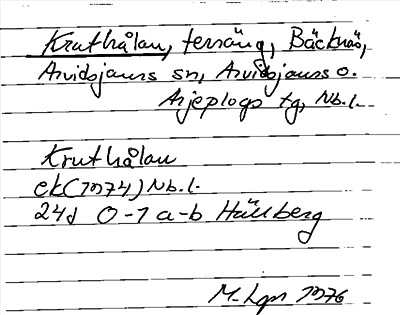 Kruthålan, terräng, Bäcknäs,
Arvidsjaurs sn, Arvidsjaurs o.
Arjeplogs tg, Nb.l.
Kruthålan
ek (1974) Nb.l.
24J 0-1 a-b Hällberg
M-Lgn 1976